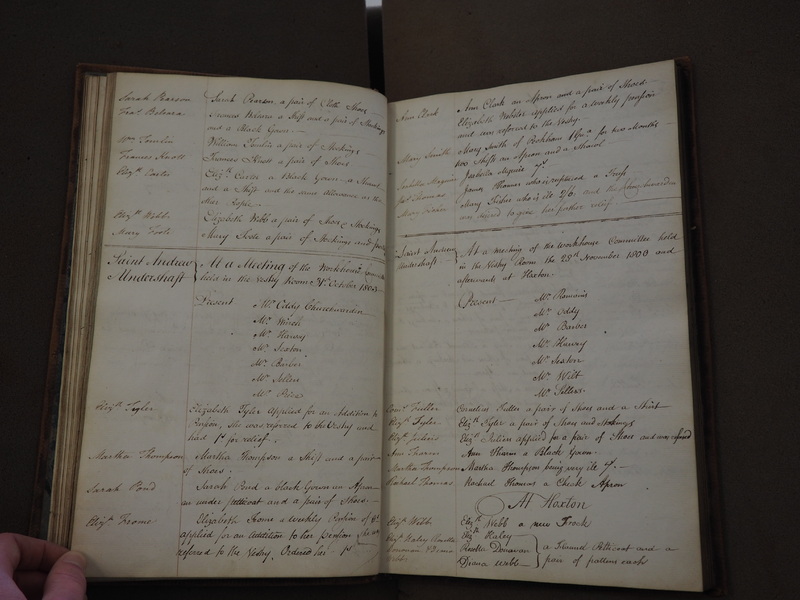 Sarah Pearson Sarah Pearson a pair of Cloth Shoes
Fras. Frances a Shift and a pair of Stockings
and a Black Gown
Wm. Tomlin William Tomlin a pair of Stockings
Frances Knott Frances Knott a pair of Shoes
Elizh. Carter Elizh. Carter a Black Gown a
and a Shift and the same allowance as the
Elizh. Webb Elizabeth Webb a pair of Shoes & Stockings
Mary Mary a pair of Stockings and
Saint Andrew At a Meeting of the Workhouse Committee
Undershaft held in the Vestry Room October
Present Mr. Eddy Churchwarden
Mr.
Mr. Harvey
Mr. Sexton
Mr. Barber
Mr. Sellers
Mr.
Elizh. Tyler Elizabeth Tyler applied for an Addition to
Pension, she was referred to the Vestry and
had 1s. for relief.
Martha Thompson Martha Thompson a Shift and a pair
of Shoes.
Sarah Pond Sarah Pond a black Gown an Apron
an under petticoat and a pair of Shoes
Elizh. Frome Elizabeth Frome a weekly Pension of
applied for an Addition to her Pension She was
referred to the Vestry. Ordered her 1s.
Ann Clark Ann Clark an Apron and a pair of Shoes
Elizabeth Webster applied for a weekly pension
and was referred to the Vestry
Mary Smith Mary Smith of Peckham for two Months
two Shifts an Apron and a Shawl
Isabella Isabella
Jas. Thomas James Thomas who is ruptured a Truss
Mary Mary who is ill 2/6 and the Churchwarden
was desired to give her further relief
Saint Andrew At a meeting of the Workhouse Committee held
Undershaft in the Vestry Room the 28th November 1800 and
afterwards at Hoxton
Present Mr.
Mr. Eddy
Mr. Barber
Mr. Harvey
Mr. Sexton
Mr. Witt
Mr. Sellers
Corns. Fuller Cornelius Fuller a pair of Shoes and a Shirt
Elizh. Tyler Elizh. Tyler a pair of Shoes and Stockings
Elizh. Elizh. applied for a pair of Shoes and was refused
Ann Ann a Black Gown
Martha Thompson Martha Thompson being very ill
Rachael Thomas Rachael Thomas a Check Apron
At Hoxton
Elizh. Webb Elizh. Webb a new Frock
Elizh. Haley Elizh. Haley
Donovan Donovan a Flannel Petticoat and a
Diana Webb pair of pattens each